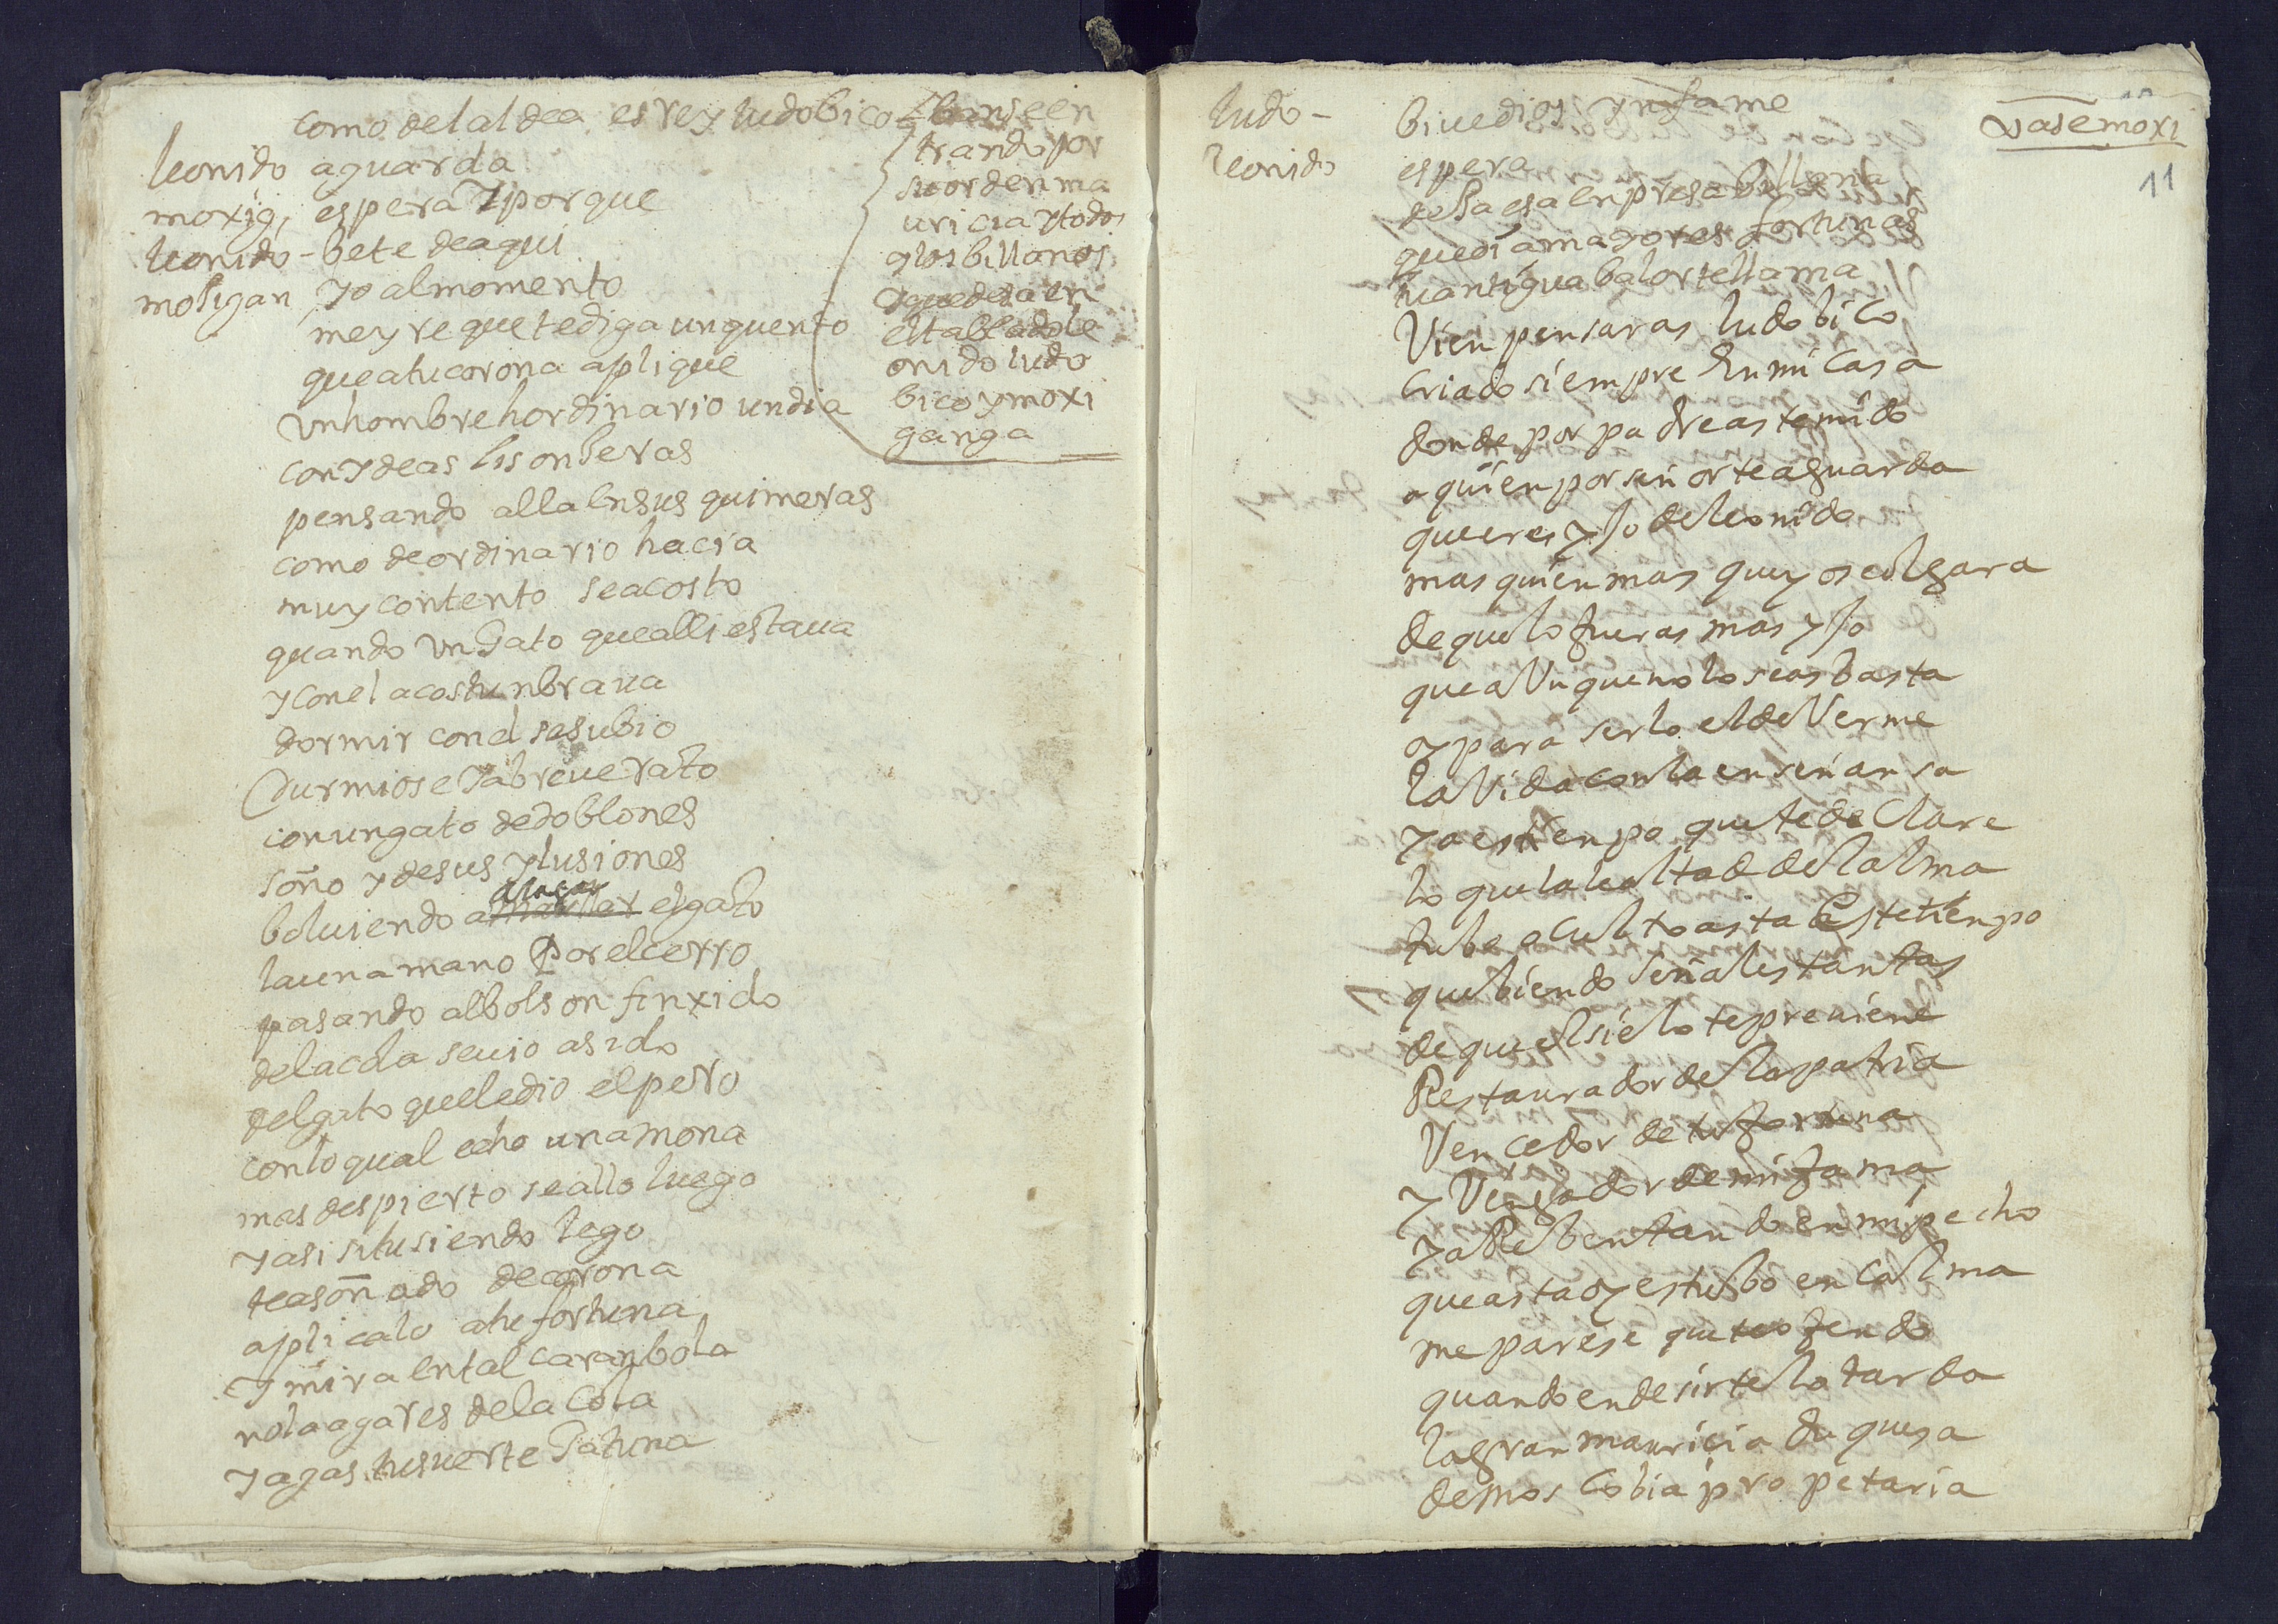 como del aldea es rey ludobico
leonido aguarda
moxig, espera y porque
leonido - bete de aqui
mosigan yo al momento
me yre que te diga un quento
que a tu corona aplique
un hombre hordinario un dia
con ydeas lisonseras
pensando alla en sus quimeras
como de ordinario hacia
muy contento se acosto
quando un gato que alli estaua
y con el acostunbraua
dormir con el se subio
durmiose y a breue rato
con un gato de doblones
soño y de sus ylusiones
boluiendo a alagar el gato
la una mano por el cerro
pasando al bolson finxido
de la cola se uio asido
del gato que le dio el pero
con lo qual echo una mona
mas despierto se allo luego
y asi si tu siendo lego
te as soñado de corona
aplicalo a tu fortuna
y mira en tal caranbola
no la agares de la cola
y agas tu suerte gatuna
banse en
trando por
su orden ma
uricia y todos
los billanos
y quedese en
el tablado le
onido ludo
bico y moxi
ganga
ludo - biue dios ynfame
vase moxi
11
leonido espera
desa esa enpresa billana
que di a mayores fortunas
tu antigua balor te llama
Vien pensaras ludobico
criado siempre En mi casa
donde por padre as tenido
a quien por señor te aguarda
que eres yjo de leonido
mas quien mas que yo se olgara
de que lo fueras mas yjo
que aUnque no lo seas basta
y para serlo el deVerme
la Vida con la enseñansa
ya es tienpo que te deClare
lo que la lealtad del alma
tube oculto asta Este tienpo
que biendo señales tantas
de que el sielo te preuiene
Restaurador de la patria
Vencedor de tu fortuna
y Vengador de mi fama
ya Rebentando en mi pecho
que asta oy estubo en calma
me parese que te ofendo
quando en desirtelo tarda
la gran mauricia duquesa
de moscobia propetaria